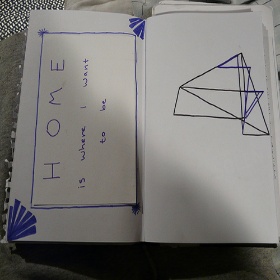 HOME
is where I want
to be